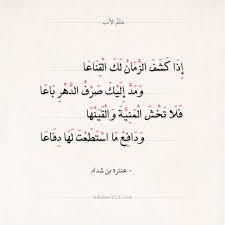 عالم الأدب
إِذا كَشَفَ الزَّمانُ لَكَ القِناعَا
وَمَدَّ إِلَيْكَ صَرْفُ الدَّهْرِ بَاعَا
فَلَا تَخْشَ المَنِيَّةَ وَالْقَيَنْهَا
وَدَافِعْ مَا اسْتَطَعْتَ لَهَا دِفَاعَا
- عنترة بن شداد -
adabworld.com